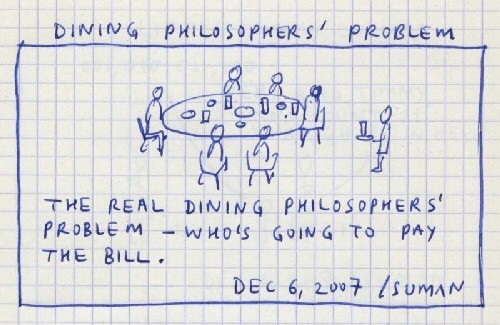 DINING PHILOSOPHERS' PROBLEM
THE REAL DINING PHILOSOPHERS'
PROBLEM – WHO'S GOING TO PAY
THE BILL.
DEC 6, 2007 /SUMAN